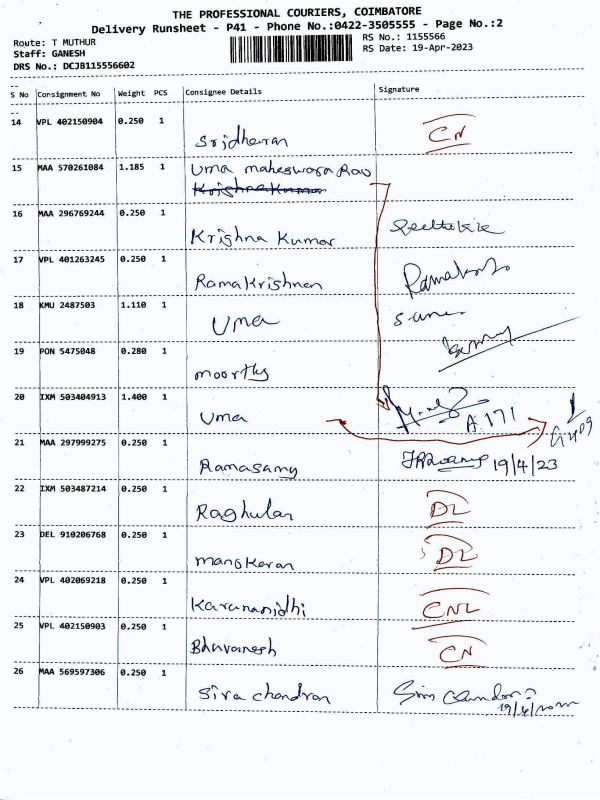 THE PROFESSIONAL COURIERS, COIMBATORE
Delivery Runsheet - P41 - Phone No.:0422-3505555 - Page No.:2
Route: T MUTHUR
RS No.: 1155566
Staff: GANESH
RS Date: 19-Apr-2023
DRS No.: DCJB115556602
S No Consignment No Weight PCS Consignee Details Signature
14 VPL 402150904 0.250 1
Sridharan CN
15 MAA 570261084 1.185 1 Uma maheswara Rao
Krishna Kumar
16 MAA 296769244 0.250 1
Krishna Kumar
17 VPL 401263245 0.250 1
Ramakrishnan
18 KMU 2487503 1.110 1
Uma
19 PON 5475048 0.280 1
moorthy
20 IXM 503404913 1.400 1
Uma A.171
21 MAA 297999275 0.250 1
Ramasamy 19/4/23
22 IXM 503487214 0.250 1
Raghulan DL
23 DEL 910206768 0.250 1
manokaran DL
24 VPL 402069218 0.250 1
Karunanidhi CNL
25 VPL 402150903 0.250 1
Bhuvanesh CN
26 MAA 569597306 0.250 1
Siva chandran